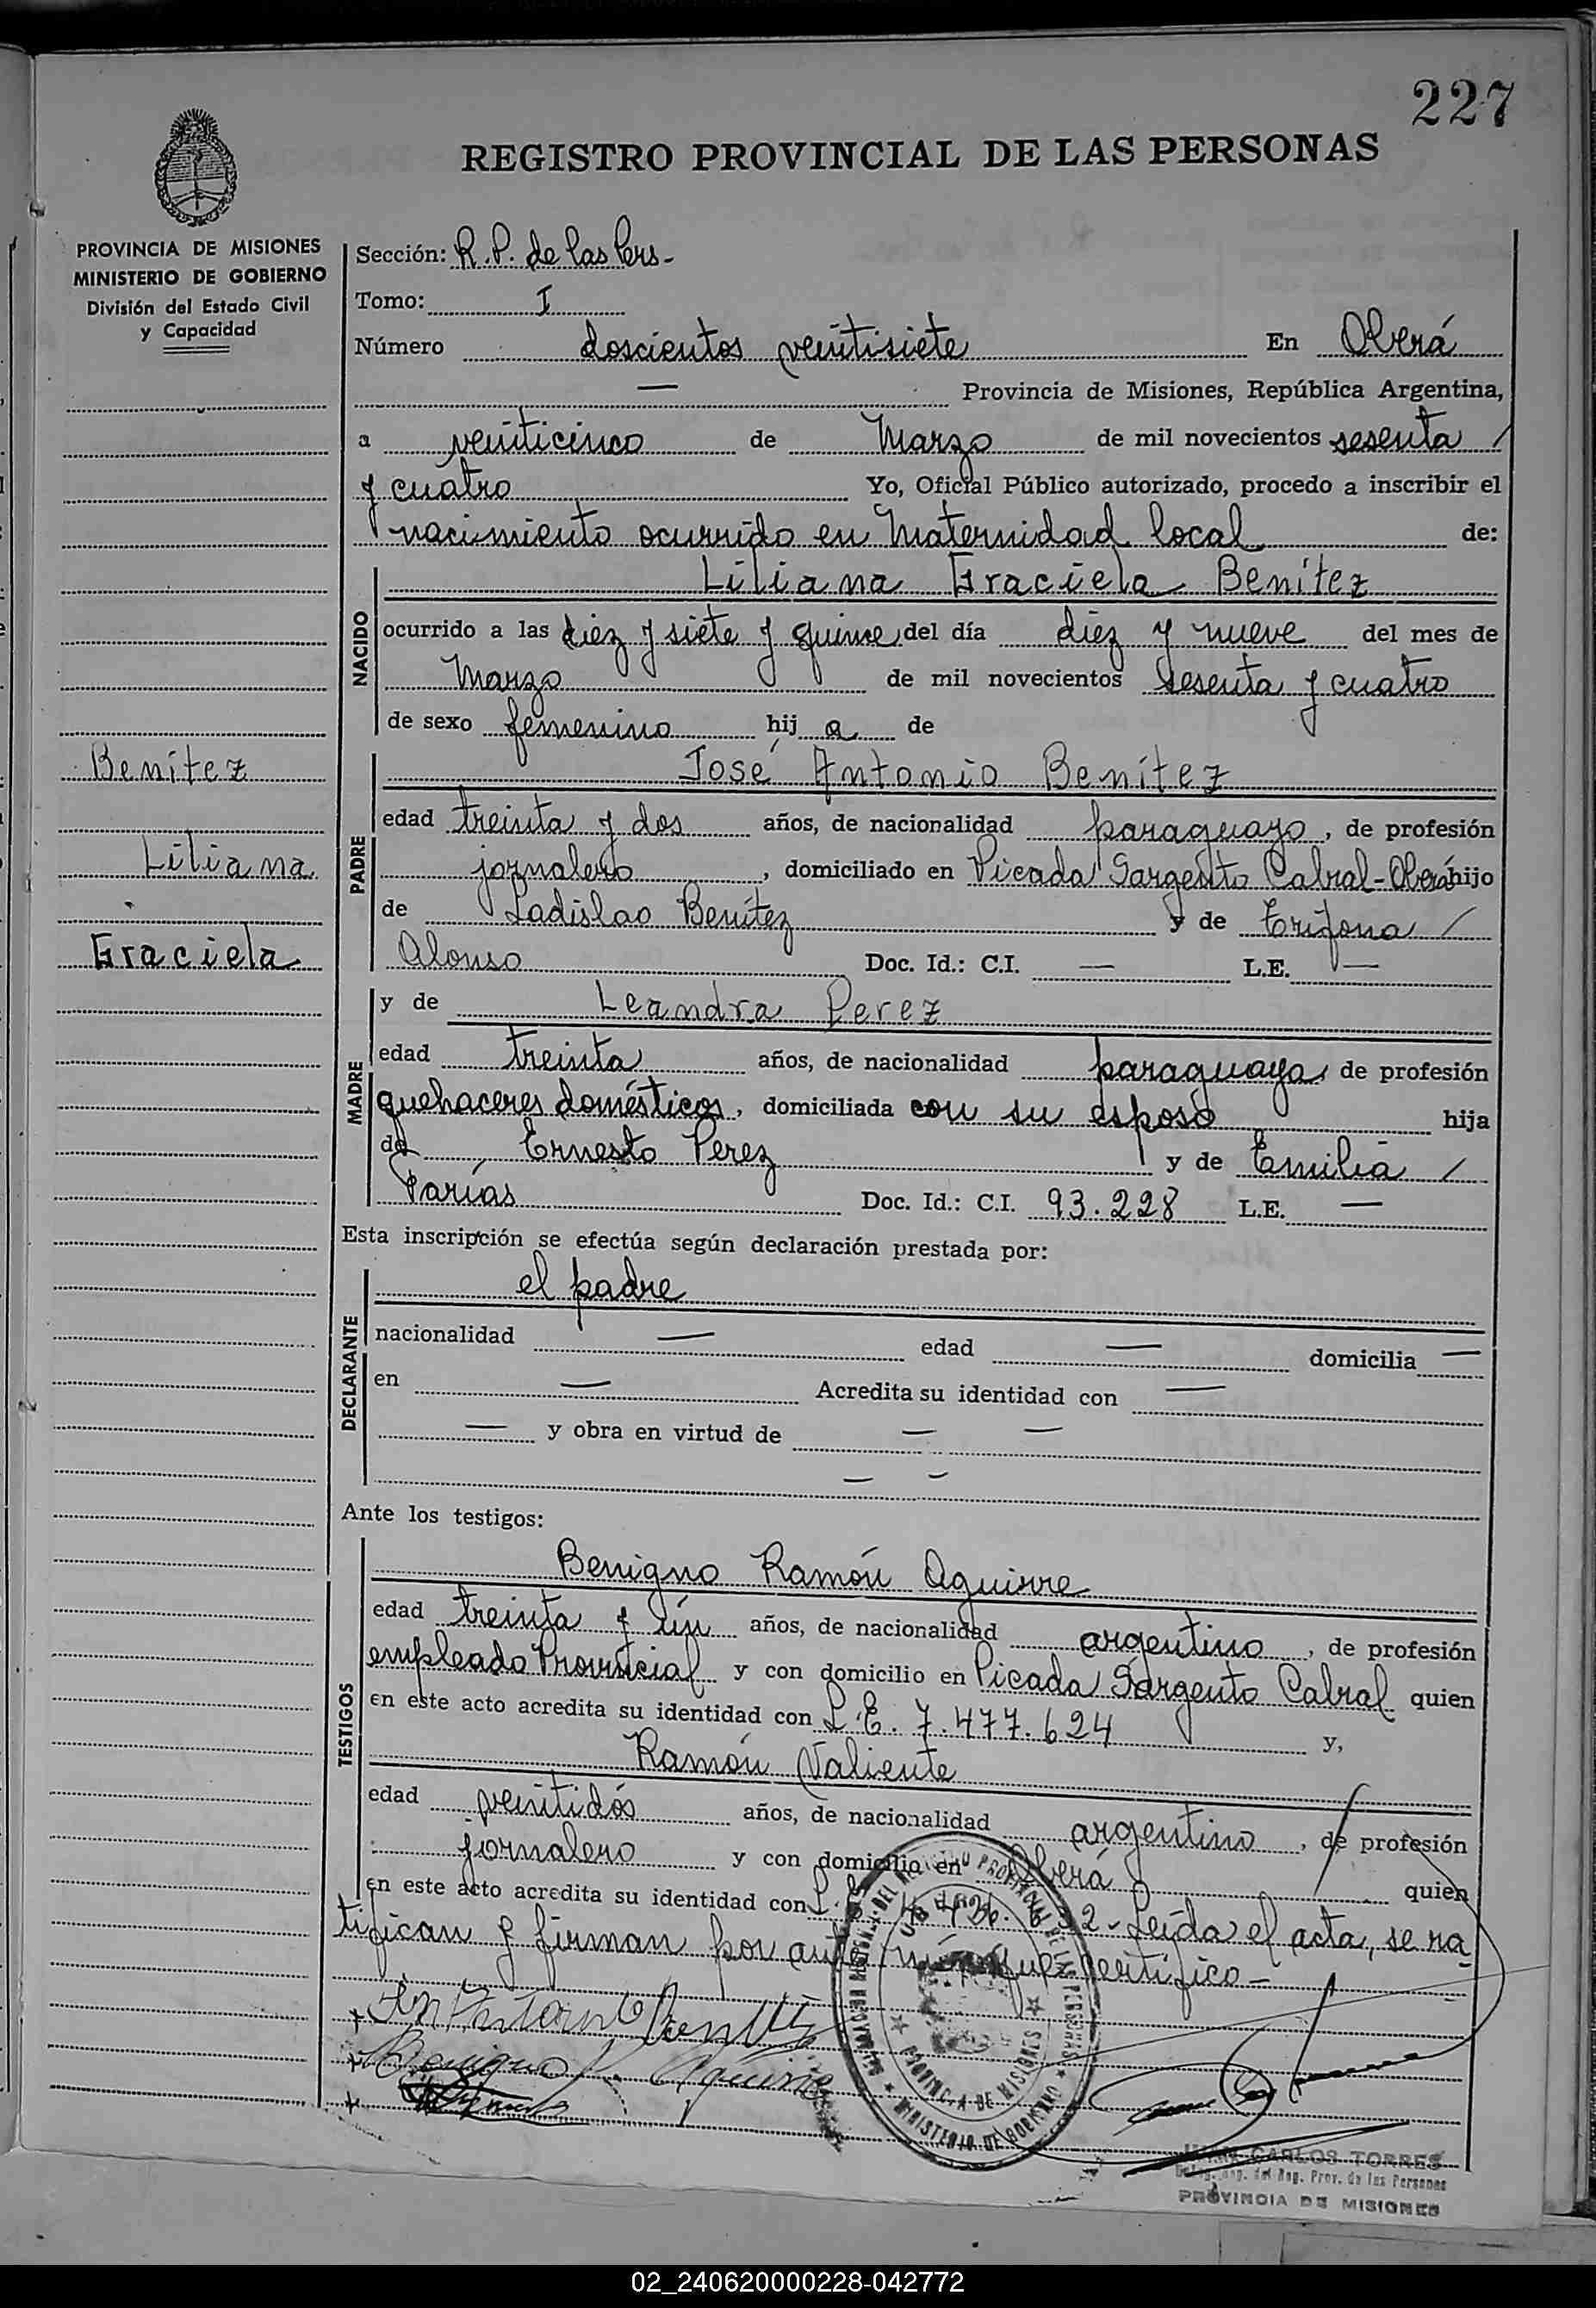 227
REGISTRO PROVINCIAL DE LAS PERSONAS
PROVINCIA DE MISIONES
MINISTERIO DE GOBIERNO
División del Estado Civil
y Capacidad
Benítez
Liliana
Graciela
Sección: R.P. de las Pers-
Tomo: I
Número doscientos veintisiete En Oberá
— Provincia de Misiones, República Argentina,
a veinticinco de Marzo de mil novecientos sesenta /
y cuatro Yo, Oficial Público autorizado, procedo a inscribir el
nacimiento ocurrido en Maternidad local de:
NACIDO
Liliana Graciela Benítez
ocurrido a las diez y siete y quince del día diez y nueve del mes de
Marzo de mil novecientos sesenta y cuatro
de sexo femenino hij a de
PADRE
José Antonio Benítez
edad treinta y dos años, de nacionalidad paraguayo, de profesión
jornalero, domiciliado en Picada Sargento Cabral-Oberá hijo
de Ladislao Benítez y de Trifona /
Alonso Doc. Id.: C.I. — L.E. —
MADRE
y de Leandra Perez
edad treinta años, de nacionalidad paraguaya, de profesión
quehaceres domésticos, domiciliada con su esposo hija
de Ernesto Perez y de Emilia /
Farías Doc. Id.: C.I. 93.228 L.E. —
Esta inscripción se efectúa según declaración prestada por:
DECLARANTE
el padre
nacionalidad — edad — domicilia —
en — Acredita su identidad con —
— y obra en virtud de — —
— —
Ante los testigos:
TESTIGOS
Benigno Ramón Aguirre
edad treinta y ún años, de nacionalidad argentino, de profesión
empleado Provincial y con domicilio en Picada Sargento Cabral quien
en este acto acredita su identidad con L.E. 7.477.624 y,
Ramón Valiente
edad veintidós años, de nacionalidad argentino, de profesión
jornalero y con domicilio en Oberá quien
en este acto acredita su identidad con L. 2- Leída el acta, se ra
tifican y firman por ante mí que certifico-
Benigno R. Aguirre
DEL REGISTRO PROVINCIAL DE LAS PERSONAS
PROVINCIA DE MISIONES
MINISTERIO DE GOBIERNO
JUAN CARLOS TORRES
del Reg. Prov. de las Personas
PROVINCIA DE MISIONES
02_240620000228-042772